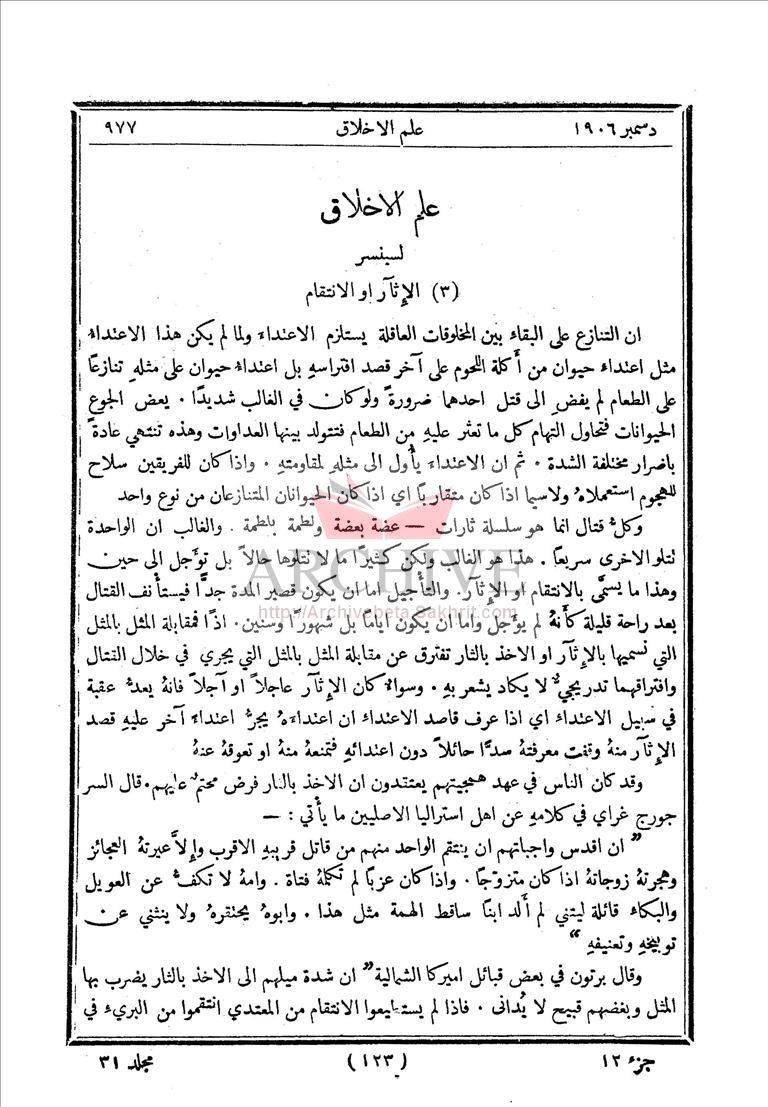 دسمبر ١٩٠٦ علم الاخلاق ٩٧٧
علم الاخلاق
لسبنسر
(٣) الإثآر او الانتقام
ان التنازع على البقاء بين المخلوقات العاقلة يستلزم الاعتداء ولما لم يكن هذا الاعتداء
مثل اعتداء حيوان من أكلة اللحوم على آخر قصد افتراسهِ بل اعتداء حيوان على مثلهِ تنازعًا
على الطعام لم يفضِ الى قتل احدهما ضرورةً ولو كان في الغالب شديدًا . يعض الجوع
الحيوانات فتحاول التهام كل ما تعثر عليهِ من الطعام فتتولد بينها العداوات وهذه تنتهي عادةً
باضرار مختلفة الشدة . ثم ان الاعتداء يأول الى مثلهِ لمقاومتهِ . واذا كان للفريقين سلاح
للهجوم استعملاهُ ولاسيما اذا كان متقاربًا اي اذا كان الحيوانان المتنازعان من نوع واحد
وكلُّ قتال انما هو سلسلة ثارات — عضة بعضة ولطمة بلطمة . والغالب ان الواحدة
تتلو الاخرى سريعًا . هذا هو الغالب ولكن كثيرًا ما لا تتلوها حالاً بل تؤجل الى حين
وهذا ما يسمَّى بالانتقام او الإثآر . والتأجيل اما ان يكون قصير المدة جدًّا فيستأنف القتال
بعد راحة قليلة كأنهُ لم يؤجل واما ان يكون ايامًا بل شهورًا وسنين . اذًا فمقابلة المثل بالمثل
التي نسميها بالإثآر او الاخذ بالثار تفترق عن مقابلة المثل بالمثل التي يجري في خلال القتال
وافتراقهما تدريجيٌّ لا يكاد يشعر بهِ . وسواءٌ كان الإثآر عاجلاً او آجلاً فانهُ يعدُّ عقبة
في سبيل الاعتداء اي اذا عرف قاصد الاعتداء ان اعتداءهُ يجرُّ اعتداء آخر عليهِ قصد
الإثآر منهُ وقفت معرفتهُ سدًّا حائلاً دون اعتدائهِ فتمنعهُ منهُ او تعوقهُ عنهُ
وقد كان الناس في عهد همجيتهم يعتقدون ان الاخذ بالثار فرض محتمٌ عليهم . قال السر
جورج غراي في كلامهِ عن اهل استراليا الاصليين ما يأتي : —
” ان اقدس واجباتهم ان ينتقم الواحد منهم من قاتل قريبهِ الاقرب وإلاَّ عيرتهُ العجائز
وهجرتهُ زوجاتهُ اذا كان متزوّجًا . واذا كان عزبًا لم تكلمهُ فتاة . وامهُ لا تكفُّ عن العويل
والبكاء قائلة ليتني لم أَلد ابنًا ساقط الهمة مثل هذا . وابوهُ يحتقرهُ ولا ينثني عن
توبيخهِ وتعنيفهِ “
وقال برتون في بعض قبائل اميركا الشمالية ” ان شدة ميلهم الى الاخذ بالثار يضرب بها
المثل وبغضهم قبيح لا يُدانى . فاذا لم يستطيعوا الانتقام من المعتدي انتقموا من البريء في
جزء ١٢ (١٢٣) مجلد ٣١
ARCHIVE
http://Archivebeta.Sakhrit.com